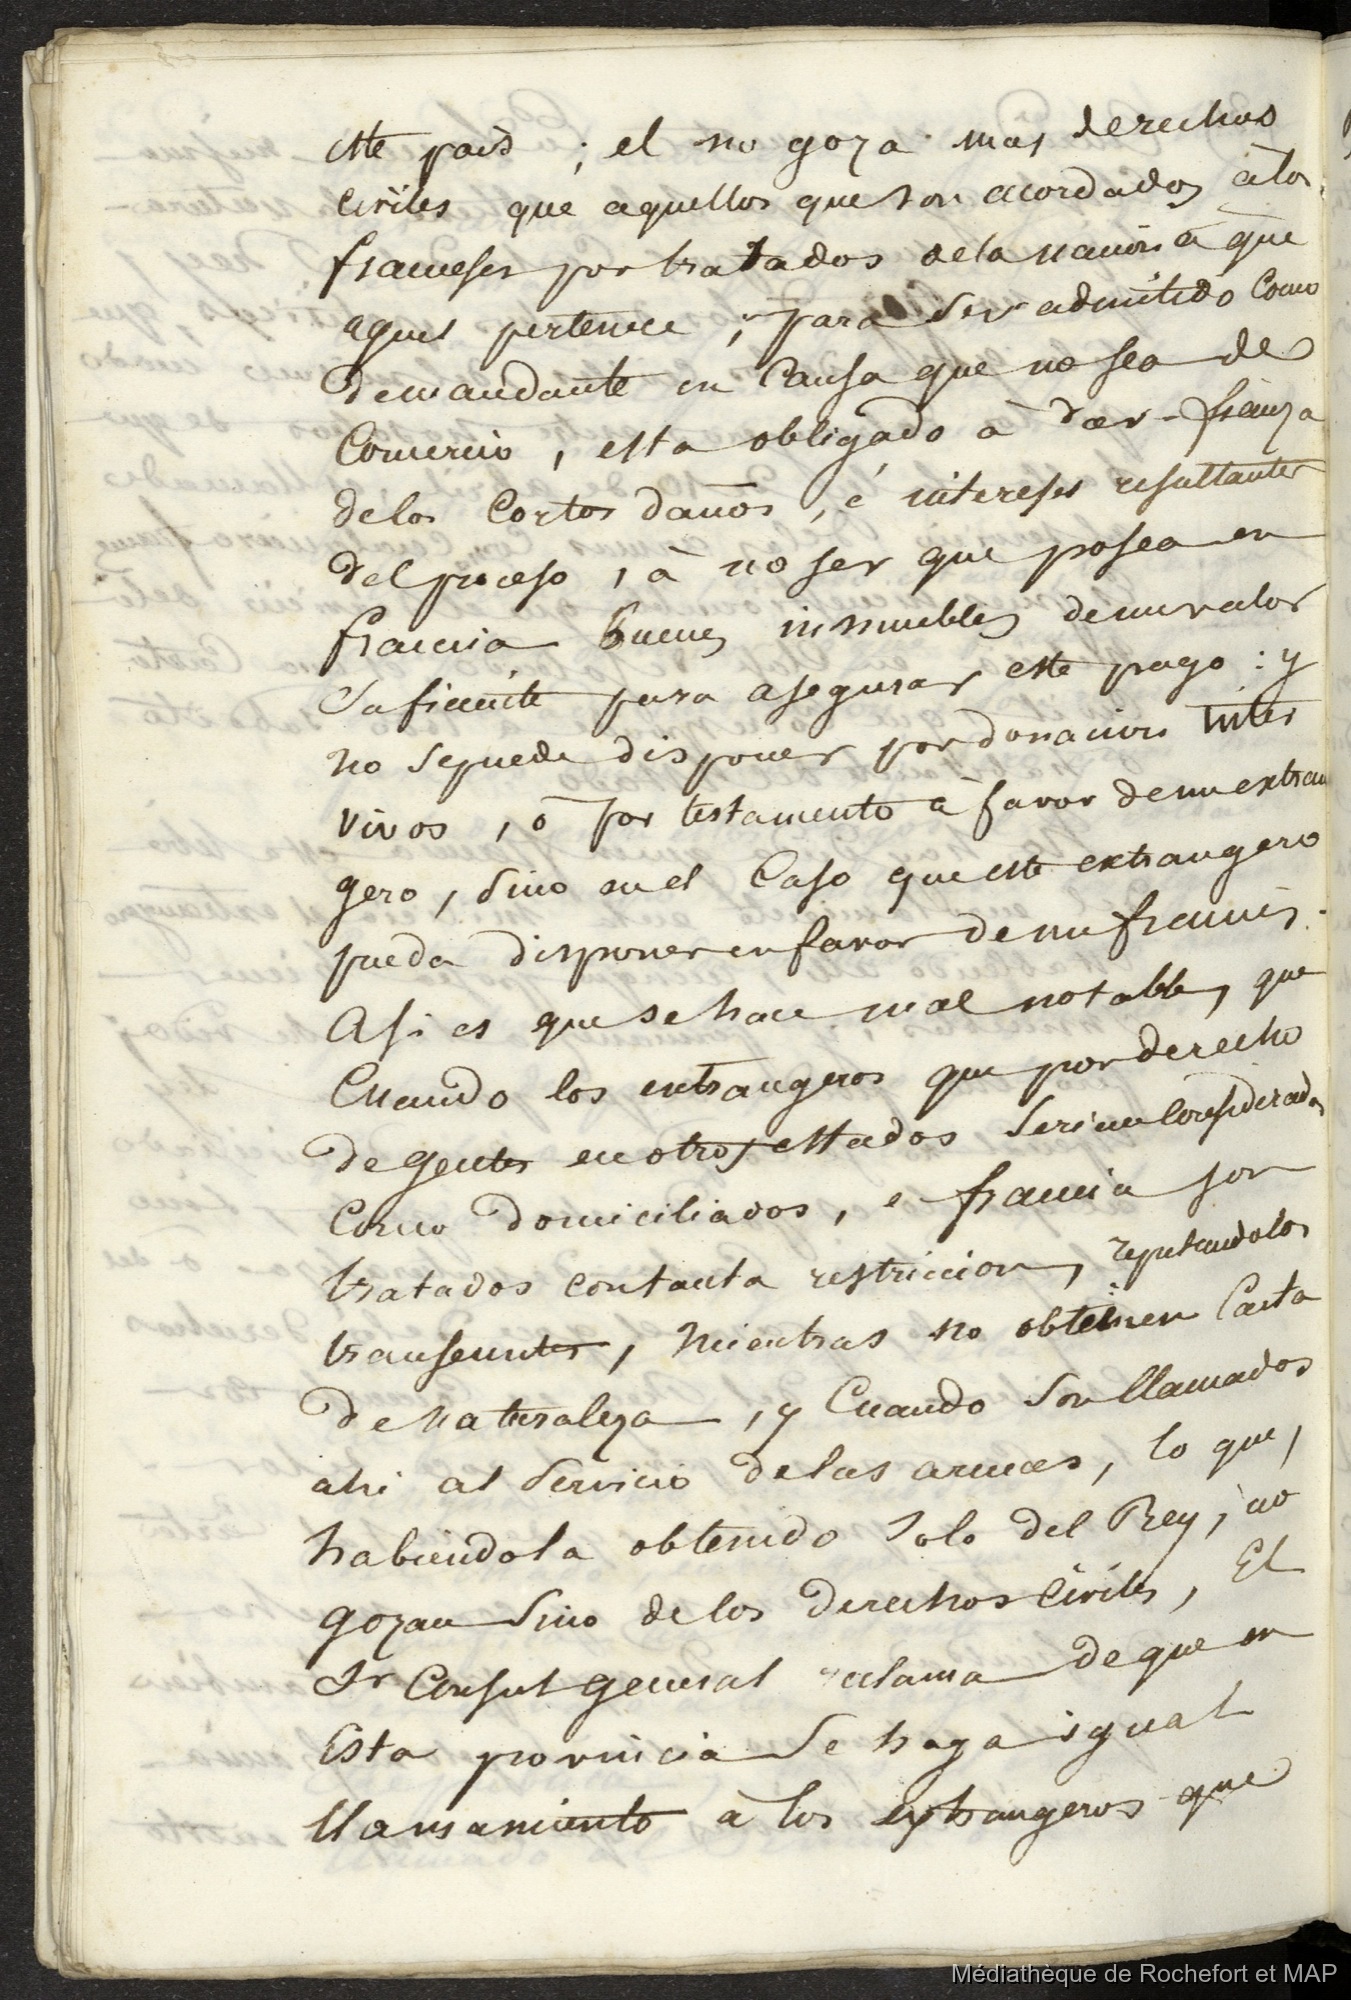 este pais ; el no goza mas derechos
civiles que aquellos que son acordados à los
franceses por tratados dela nacion à que
aquel pertenece ; para ser admitido Como
demandante en Causa que no sea de
Comercio , esta obligado à dar fianza
delos Costos daños , é intereses resultantes
del proceso , à no ser que posea en
francia buenes inmuebles deun valor
Suficiente para asegurar este pago : y
no se puede disponer por donacion inter
vivos , ó por testamento à favor deun extran
gero , sino en el Caso que este extrangero
pueda disponer en favor de un francés .
Asi es que se hace mal notable , que
Cuando los extrangeros que por derecho
de gentes en otros estados serian Considerados
Como domiciliados , e francia son
tratados con tanta restriccion , reputandolos
transeuntes , mientras no obtienen Carta
de naturaleza , y Cuando son llamados
ahi al servicio de las armas , lo que ,
habiendola obtenido solo del Rey , no
gozan sino de los derechos Civiles , El
Sr Consul general reclama de que en
Esta provincia se haga igual
llamamiento à los extrangeros que
Médiathèque de Rochefort et MAP